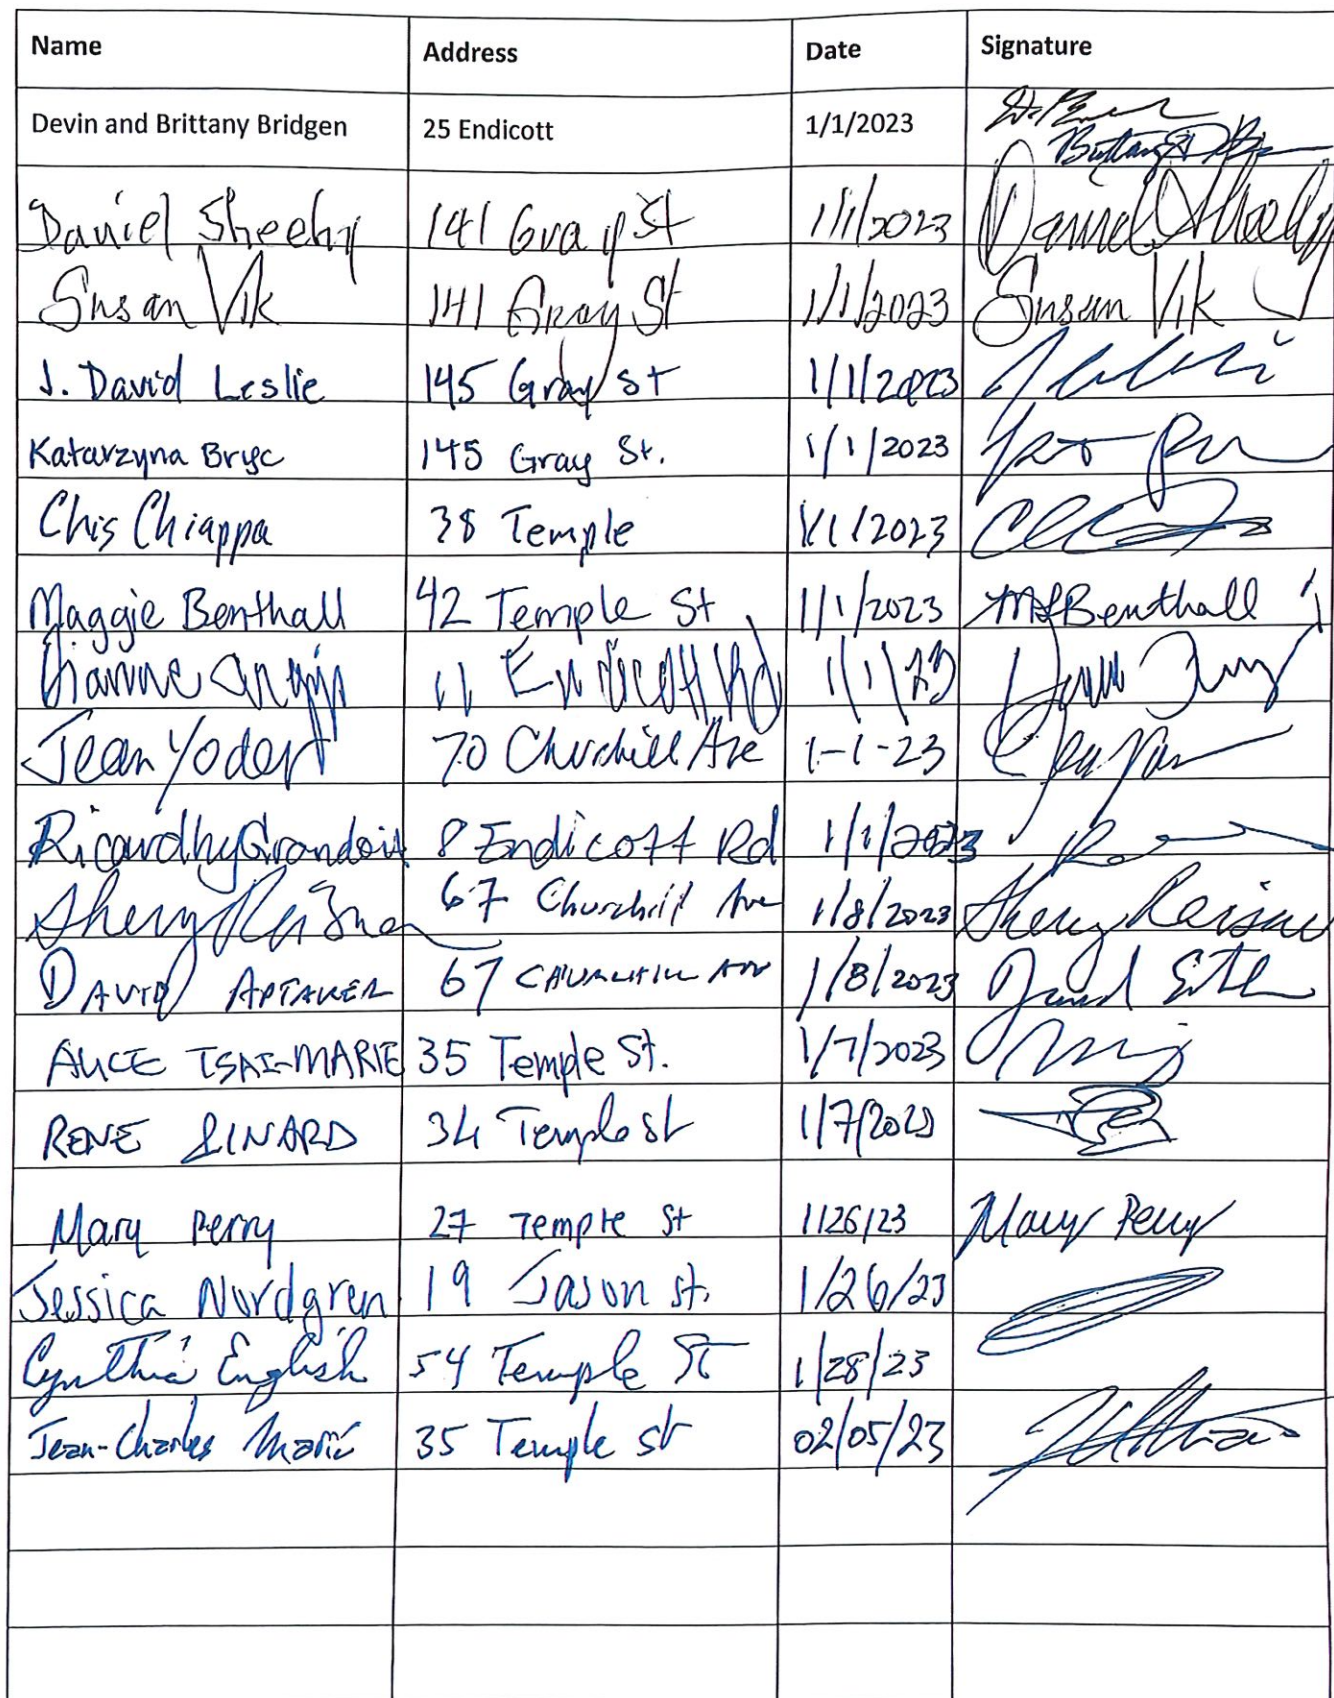 Name Address Date Signature
Devin and Brittany Bridgen 25 Endicott 1/1/2023
Daniel Sheehy 141 Gray St 1/1/2023 Daniel Sheehy
Susan Vik 141 Gray St 1/1/2023 Susan Vik
J. David Leslie 145 Gray St 1/1/2023
Katarzyna Bryc 145 Gray St. 1/1/2023
Chis Chiappa 38 Temple 1/1/2023
Maggie Benthall 42 Temple St 1/1/2023 MLBenthall
11 Endicott Rd 1/1/23
Jean Yoder 70 Churchill Ave 1-1-23
Ricardhy Grandoit 8 Endicott Rd 1/1/2023
Sheryl Reisner 67 Churchill Ave 1/8/2023
DAVID APTAKER 67 CHURCHILL AVE 1/8/2023
ALICE TSAI-MARIE 35 Temple St. 1/7/2023
RENE LINARD 34 Temple St 1/7/2023
Mary Perry 27 Temple St 1/26/23 Mary Perry
Jessica Nordgren 19 Jason St. 1/26/23
Cynthia English 54 Temple St 1/28/23
Jean-Charles Marie 35 Temple St 02/05/23